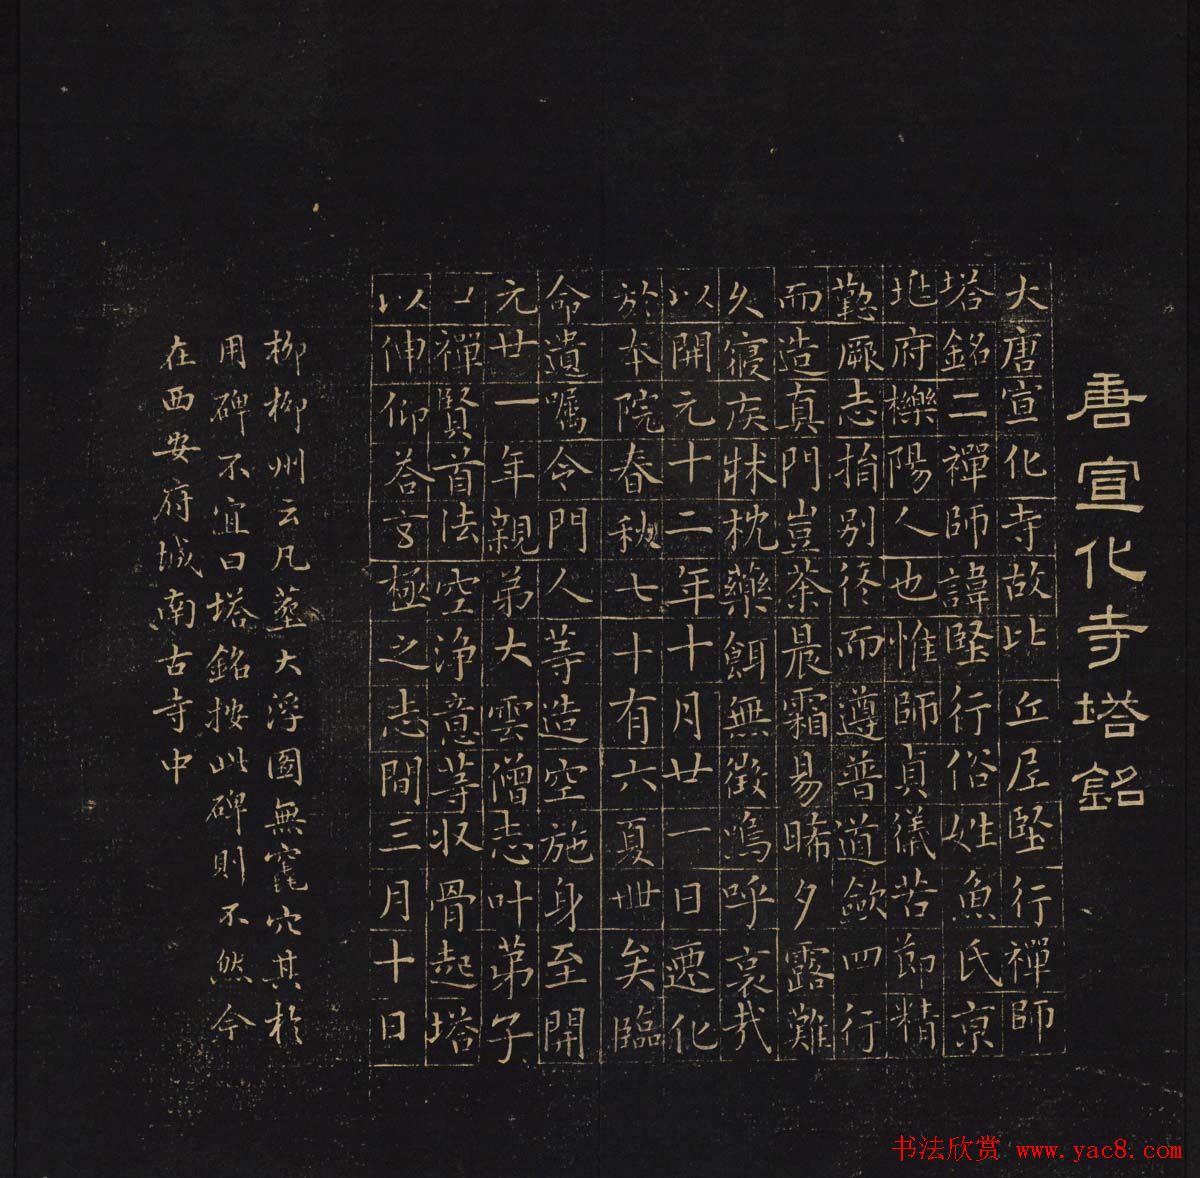 唐宣化寺塔銘
大唐宣化寺故比丘尼堅行禪師
塔銘二禪師諱堅行俗姓魚氏京
兆府櫟陽人也惟師貞儀苦節精
懃厥志指別修而遵普道歛四行
而造真門豈荼晨霜易晞夕露難
久寢疾牀枕藥餌無徵嗚呼哀哉
以開元十二年十月廿一日遷化
於本院春秋七十有六夏卌矣臨
命遺囑令門人等造空施身至開
元廿一年親弟大雲僧志叶弟子
禪賢首法空淨意等收骨起塔
以伸仰荅玄極之志間三月十日
柳柳州云凡葬大浮圖無竁穴其於
用碑不宜曰塔銘按此碑則不然今
在西安府城南古寺中
书法欣赏 www.yac8.com